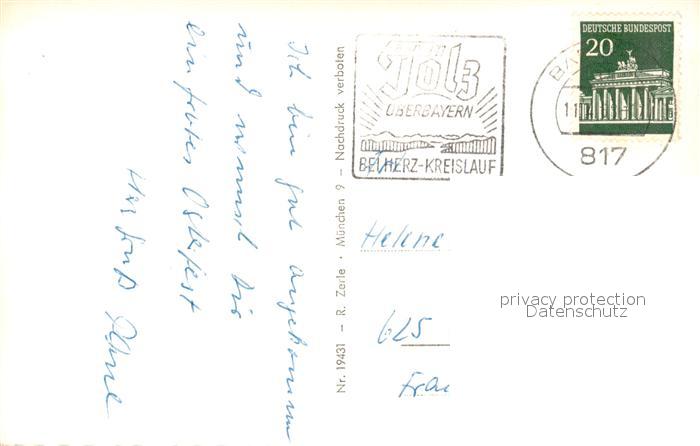 Ich bin gut angekommen
und wünsche Dir
ein frohes Osterfest
Herzl. Gruß
Nr. 19431 – R. Zerle · München 9 – Nachdruck verboten
Tölz
OBERBAYERN
BEI HERZ-KREISLAUF
DEUTSCHE BUNDESPOST
20
BA
11
817
Helene
625
Frau
privacy protection
Datenschutz